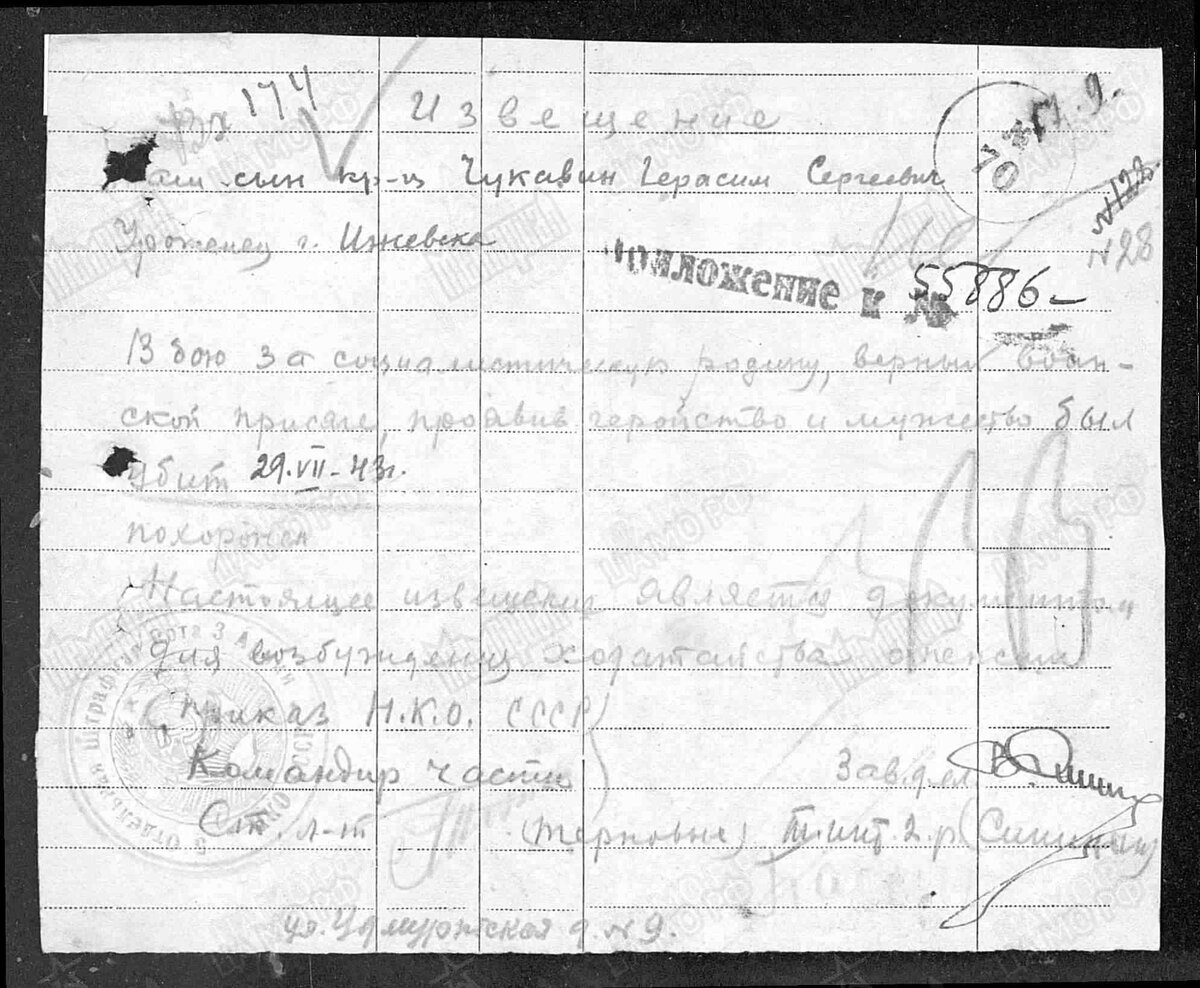 Вх 174
Извещение
70
Ваш сын кр-ц Чукавин Герасим Сергеевич
Уроженец г. Ижевска
N 128
N 28
Приложение к № 55886
В бою за социалистическую родину, верный воин-
ской присяге, проявив геройство и мужество был
убит 29.VII-43г.
похоронен
Настоящее извещение является документом
для возбуждения ходатайства о пенсии
(приказ Н.К.О. СССР)
Командир части Зав. дел.
Ст. л-т т.инт.2.р
ул. Удмуртская д. № 9.
5 Отдельная Штрафная рота 3 Армии